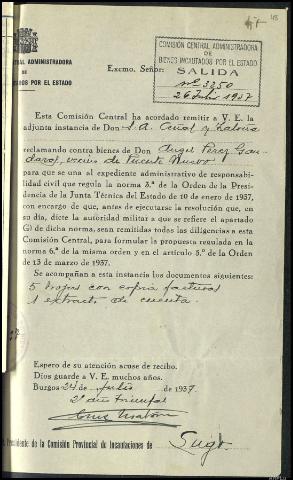 47 48
CENTRAL ADMINISTRADORA
DE
INCAUTADOS POR EL ESTADO
COMISIÓN CENTRAL ADMINISTRADORA
DE
BIENES INCAUTADOS POR EL ESTADO
SALIDA
nº 3250
26 Julio 1937
Excmo. Señor:
Esta Comisión Central ha acordado remitir a V. E. la
adjunta instancia de Don S. A. Ceñal y Zaloña
reclamando contra bienes de Don Angel Pérez Gan-
daral, vecino de Puente Nuevo
para que se una al expediente administrativo de responsabi-
lidad civil que regula la norma 3.ª de la Orden de la Presi-
dencia de la Junta Técnica del Estado de 10 de enero de 1937,
con encargo de que, antes de ejecutarse la resolución que, en
su día, dicte la autoridad militar a que se refiere el apartado
G) de dicha norma, se sean remitidas todas las diligencias a esta
Comisión Central, para formular la propuesta regulada en la
norma 6.ª de la misma orden y en el artículo 5.º de la Orden
de 13 de marzo de 1937.
Se acompañan a esta instancia los documentos siguientes:
5 hojas con copia factura
1 extracto de cuenta.
Espero de su atención acuse de recibo.
Dios guarde a V. E. muchos años.
Burgos 24 de Julio de 1937
2º año triunfal
Presidente de la Comisión Provincial de Incautaciones de Lugo.